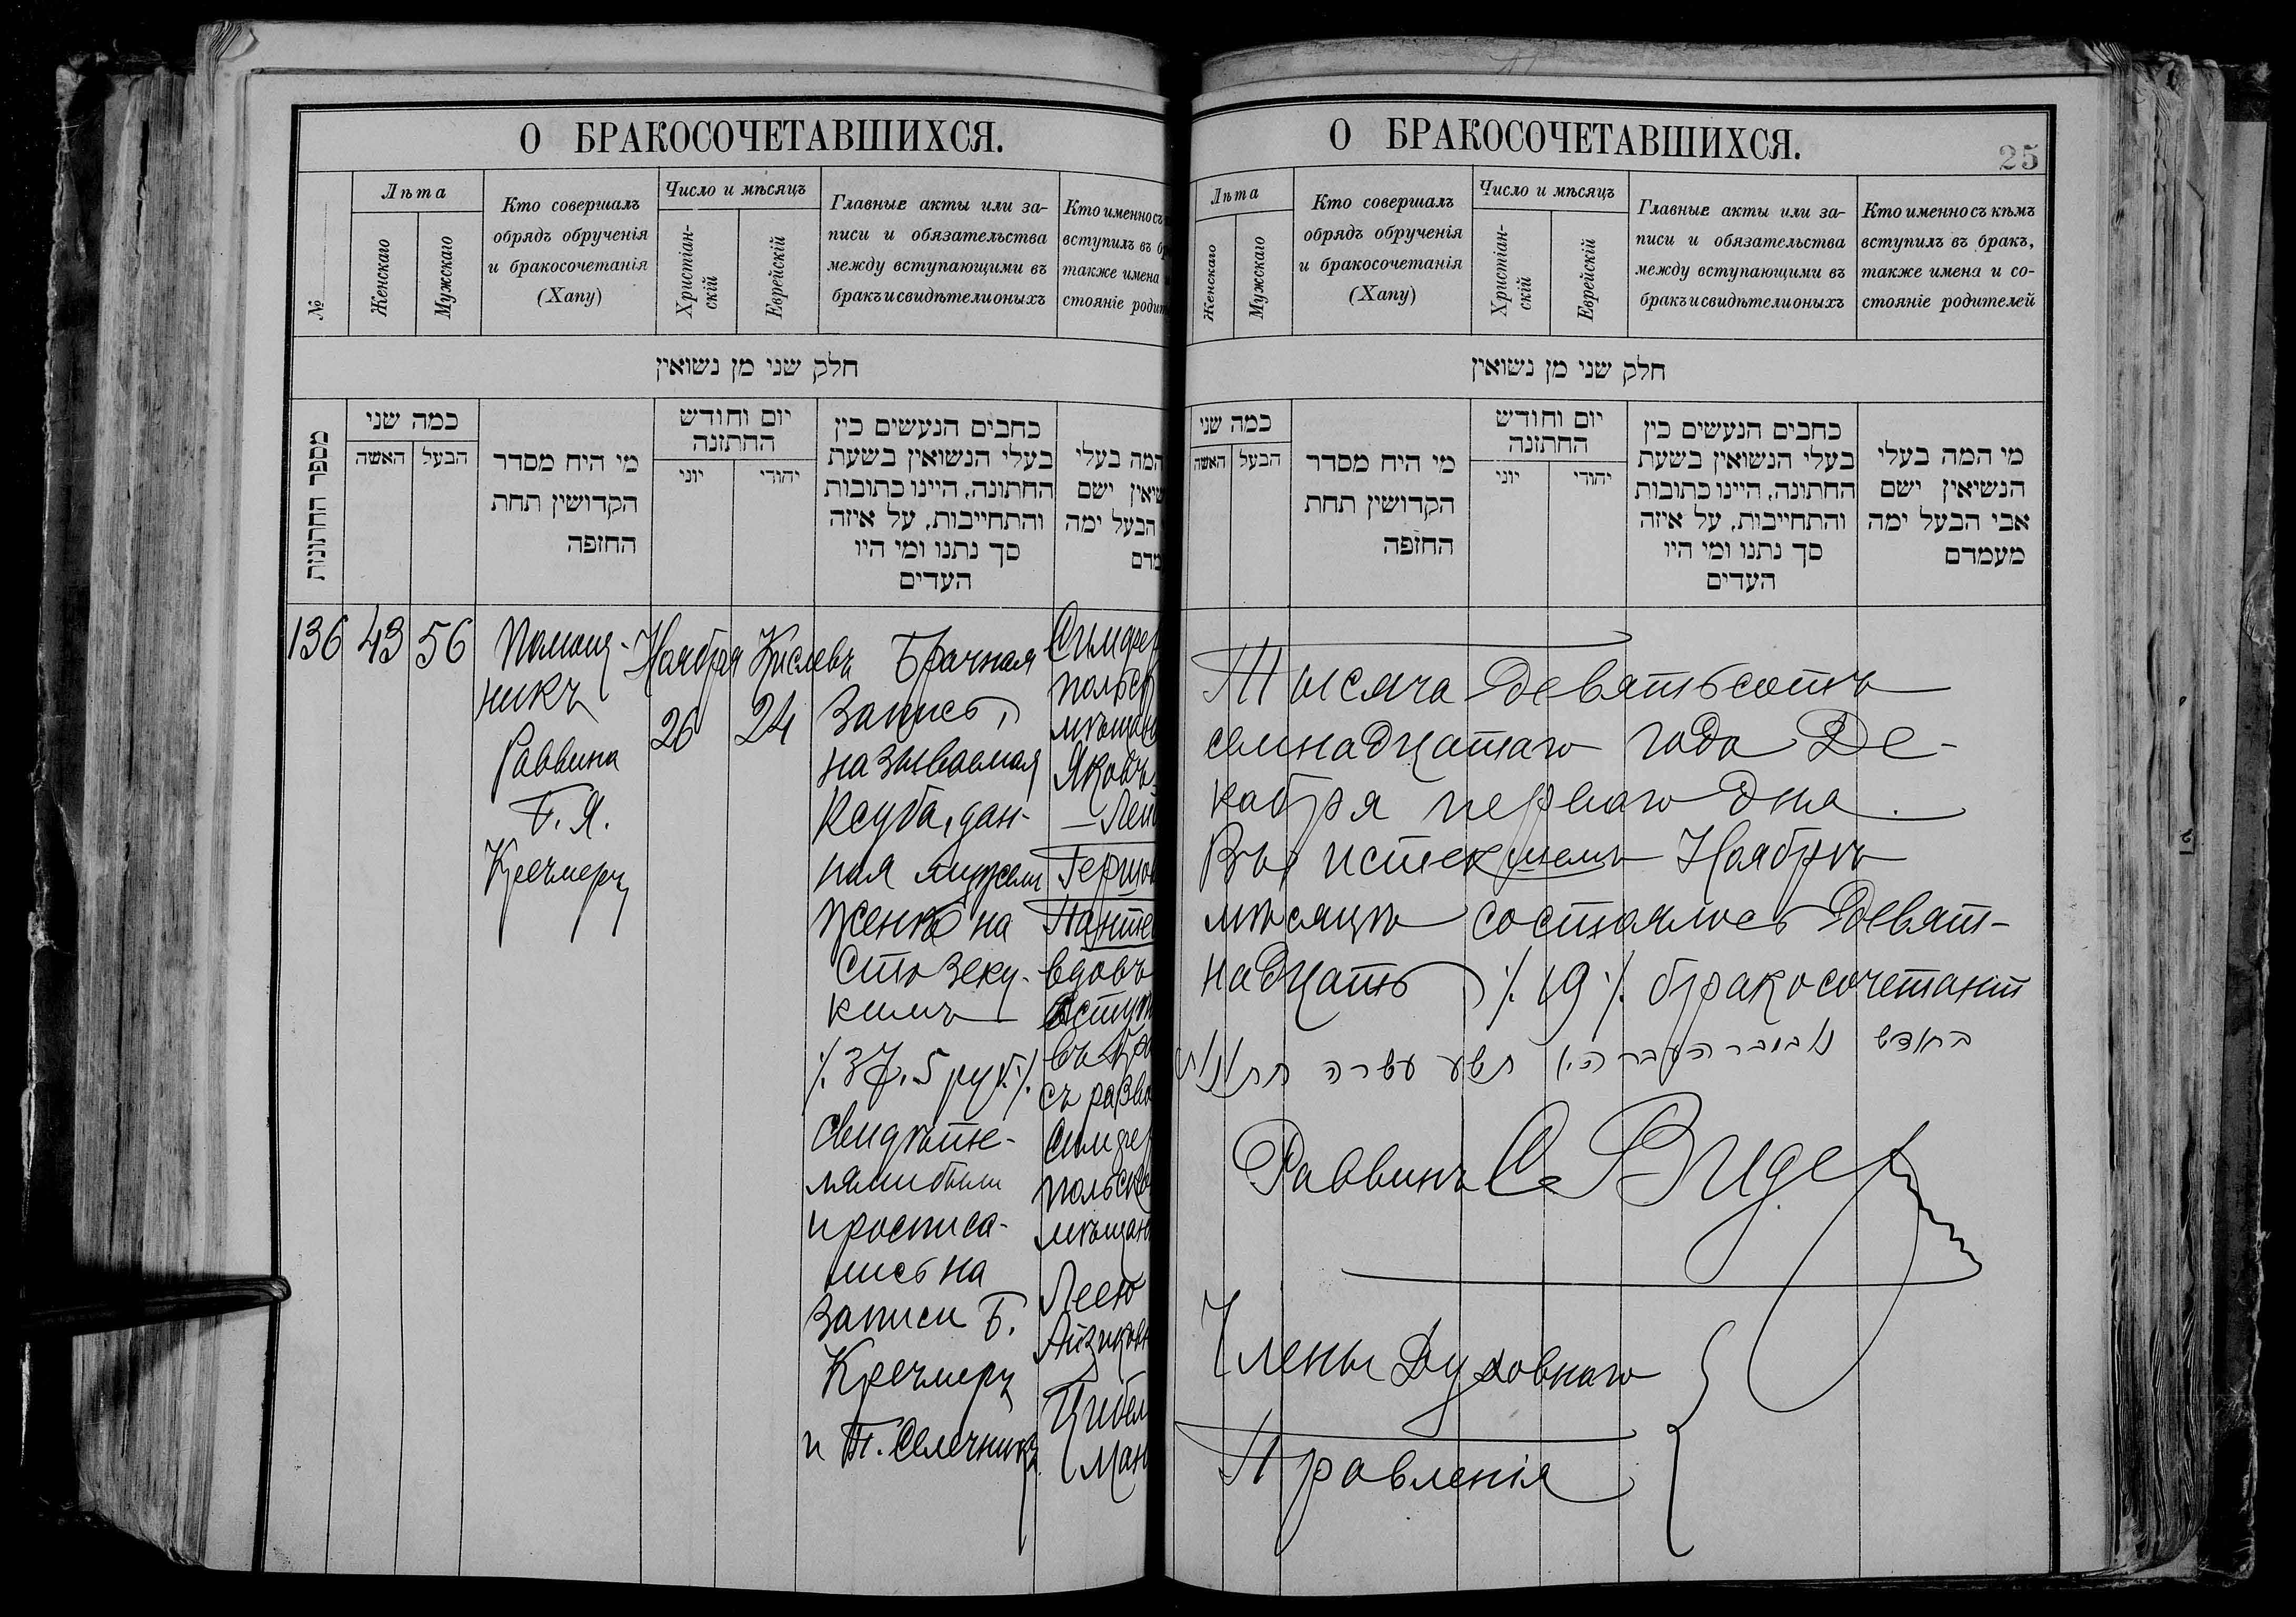 О БРАКОСОЧЕТАВШИХСЯ.
№
Лѣта
Женскаго
Мужскаго
Кто совершалъ
обрядъ обрученія
и бракосочетанія
(Хапу)
Число и мѣсяцъ
Христіан-
скій
Еврейскій
Главные акты или за-
писи и обязательства
между вступающими въ
бракъ и свидѣтели оныхъ
Кто именно съ
вступилъ въ
также имена
стояніе
חלק שני מן נשואין
מספר החתונות
כמה שני
האשה
הבעל
מי היח מסדר
הקדושין תחת
החופה
יום וחודש
החתונה
יוני
יהודי
כחבים הנעשים כין
בעלי הנשואין בשעת
החתונה, היינו כתובות
והתחייבות, על איזה
סך נתנו ומי היו
העדים
המה בעלי
ישם
הבעל ימה
136
43
56
Помощ-
никъ
Раввина
Б. Я.
Кречмеръ
Ноября
26
Кислевъ
24
Брачная
запись,
называемая
Ксуба, дан-
ная мужем
женѣ на
сто зеку-
кимъ
⁒ 37.5 руб. ⁒
Свидѣте-
лями были
и росписа-
лись на
записи Б.
Кречмеръ
и Т. Селечникъ
Симфер
польск
мѣщан
Яковъ
– Лей
Гершо
Панте
вдовъ
вступ
въ бра
съ разв
Симфер
польск
мѣщан
Леею
Айзиков
Цибел
Ман
О БРАКОСОЧЕТАВШИХСЯ.
25
Лѣта
Женскаго
Мужскаго
Кто совершалъ
обрядъ обрученія
и бракосочетанія
(Хапу)
Число и мѣсяцъ
Христіан-
скій
Еврейскій
Главные акты или за-
писи и обязательства
между вступающими въ
бракъ и свидѣтели оныхъ
Кто именно съ кѣмъ
вступилъ въ бракъ,
также имена и со-
стояніе родителей
חלק שני מן נשואין
כמה שני
האשה
הבעל
מי היח מסדר
הקדושין תחת
החופה
יום וחודש
החתונה
יוני
יהודי
כחבים הנעשים כין
בעלי הנשואין בשעת
החתונה, היינו כתובות
והתחייבות, על איזה
סך נתנו ומי היו
העדים
מי המה בעלי
הנשיאין ישם
אבי הבעל ימה
מעמדם
Тысяча девятьсотъ
семнадцатаго года Де-
кабря перваго дня.
Въ истекшемъ Ноябрѣ
мѣсяцѣ состоялось девят-
надцать ⁒ 19 ⁒ бракосочетаній
בחודש נאובבר העבר היו תשע עשרה
Раввинъ С Видер
Члены Духовнаго
Правленія